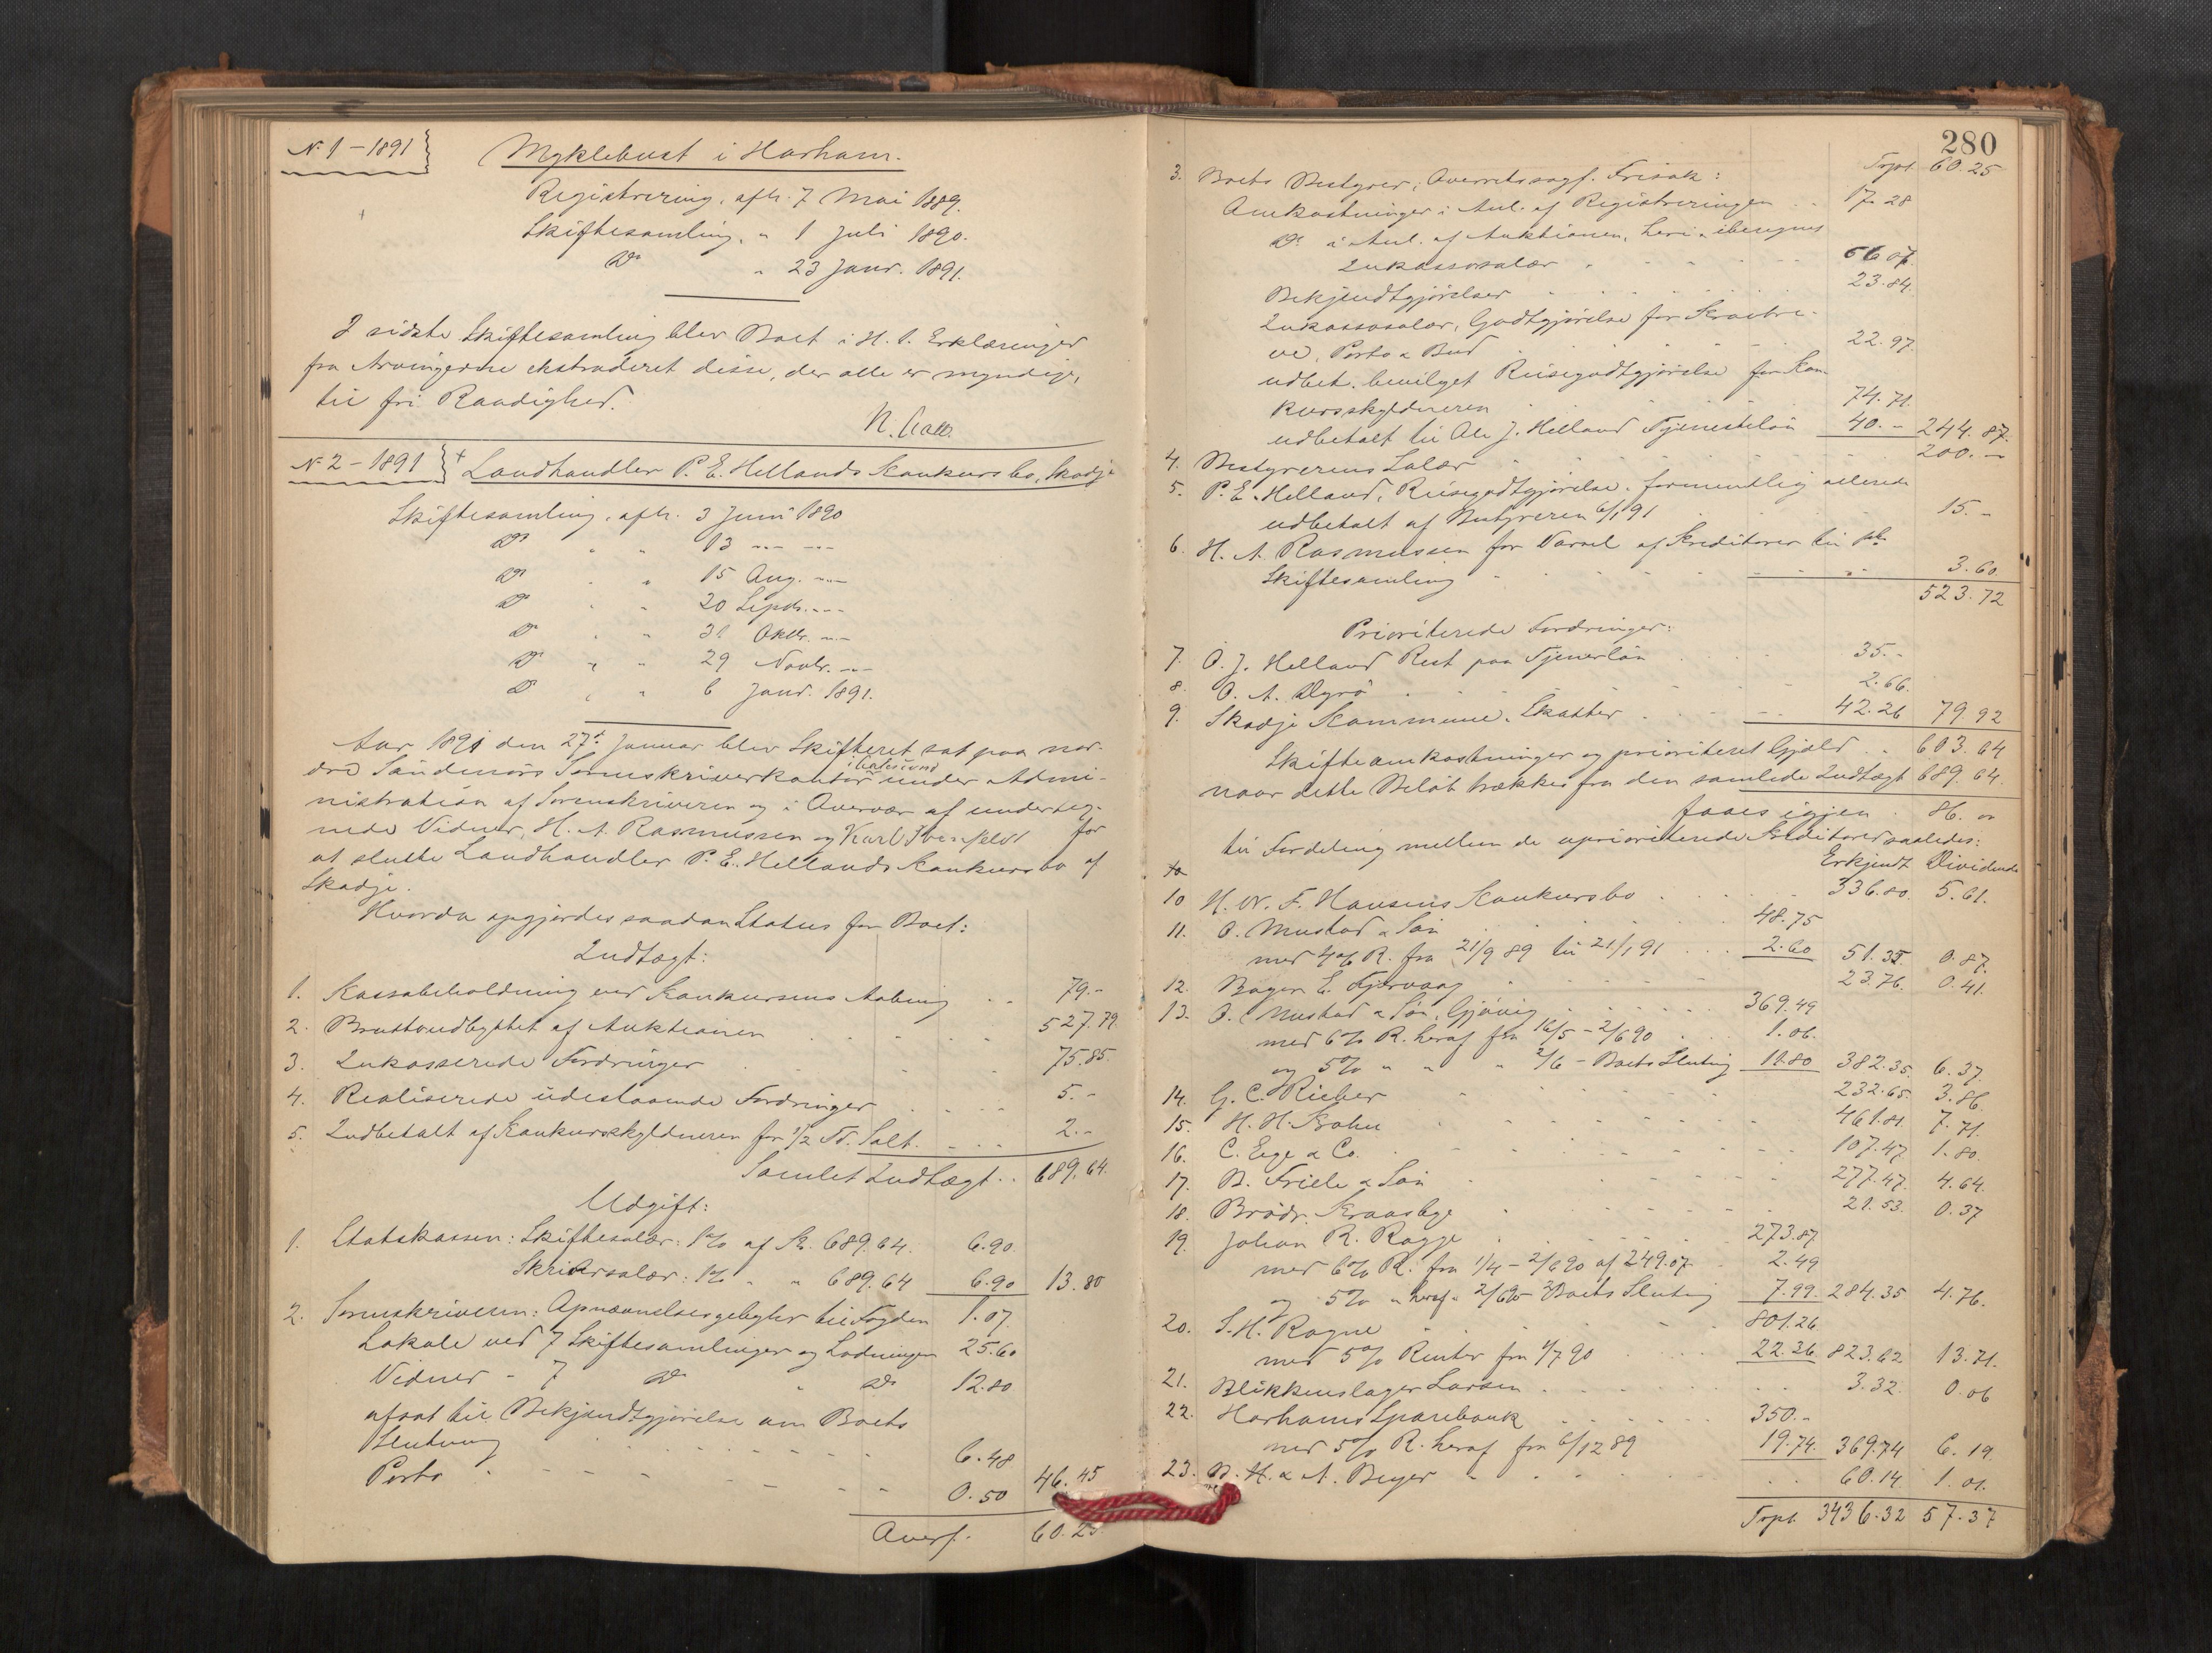 N. 1 – 1891
Myklebust i Harham.
Registrering, afh. 7 Mai 1889.
Skiftesamling, " 1 Juli 1890.
Do " 23 Janr. 1891.
I sidste Skiftesamling blev Boet i H. t. Erklæringer
fra Arvingerne ekstraderet disse, der alle er myndige,
til fri Raadighed.
N. 2 – 1891
Landhandler P. E. Hellands Konkursbo, Skodje
Skiftesamling, afh. 3 Juni 1890
Do " " 13 " "
Do " " 15 Aug. "
Do " " 20 Septr. "
Do " " 31 Oktbr. "
Do " " 29 Novbr. "
Do " " 6 Janr. 1891.
Aar 1891 den 27de Januar blev Skifteret sat paa nor-
dre Søndmørs Sorenskriverkontor i Aalesund under Admi-
nistration af Sorenskriveren og i Overvær af underteg-
nede Vidner, H. A. Rasmussen og Karl for
at slutte Landhandler P. E. Hellands Konkursbo af
Skodje.
Hvorda opgjordes saadan Status for Boet:
Indtægt:
1. Kassabeholdning ved Konkursens Aabning 79.-
2. Bruttoudbyttet af Auktionen 527.79
3. Inkasserede Fordringer 75.85.
4. Realiserede udestaaende Fordringer 5.-
5. Indbetalt af Konkursskyldneren for 1/2 Td. Salt. 2.-
Samlet Indtægt 689.64.
Udgift:
1. Statskassen: Skiftesalær: 1% af Kr. 689.64. 6.90.
Skriversalær: 1% " " 689.64 6.90 13.80
2. Sorenskriveren: Opnævnelsesgebyhr til Fogden 1.07.
Lokale ved 7 Skiftesamlinger og Lodningen 25.60
Vidner - 7 Do " Do 12.80
afsat til Bekjendtgjørelse om Boets
Slutning 6.48
Porto 0.50 46.45
Overf. 60.25
280
Trpt. 60.25
3. Boets Bestyrer, Overretssagf. Frisak:
Omkostninger i Anl. af Registreringen 17.28
Do i Anl. af Auktionen, heri iberegnet
Inkassosalær 66.07.
Bekjendtgjørelser 23.84.
Inkassosalær, Godtgjørelse for Skrive-
re, Porto & Bud 22.97.
udbet. bevilget Reisegodtgjørelse for Kon-
kursskyldneren 74.71.
udbetalt til Ole J. Helland Tjenesteløn 40.- 244.87.
4. Bestyrerens Salær 200.-
5. P. E. Helland, Reisegodtgjørelse, formentlig allerede
udbetalt af Bestyreren 6/1 91 15.-
6. H. A. Rasmussen for Varsel af Kreditorer til
Skiftesamling 3.60.
523.72
Prioriterede Fordringer:
7. O. J. Helland Rest paa Tjenerløn 35.-
8. O. A. Dyrø 2.66.
9. Skodje Kommune, Skatter 42.26 79.92
Skifteomkostninger og prioriteret Gjæld 603.64
naar dette Beløb trækkes fra den samlede Indtægt 689.64.
faaes igjen 86.00
til Fordeling mellem de uprioriterede Kreditorer saaledes:
Erkjendt Dividende
10 H. N. F. Hansens Konkursbo 336.80. 5.61.
11. O. Mustad & Søn 48.75
med 4% R. fra 21/9 89 til 21/1 91 2.60 51.35 0.87.
12. Bager E. Fjørvaag 23.76. 0.41.
13. O. Mustad & Søn, Gjøvig 369.49
med 6% R. heraf fra 16/5 - 2/6 90 1.06.
og 5% " " " 2/6 - Boets Slutnig 11.80 382.35. 6.37.
14. G. C. Rieber 232.65. 3.86.
15. H. H. Krohn 461.81. 7.71.
16. C. Ege & Co. 107.47. 1.80.
17. B. Friele & Søn 277.47. 4.64.
18. Brødr. Kraasbye 21.53. 0.37
19. Johan R. Rogge 273.87
med 6% R. fra 1/4 - 2/6 90 af 249.07. 2.49
og 5% " heraf " 2/6 90 - Boets Slutnig 7.99. 284.35 4.76.
20. S. H. Rogne 801.26
med 5% Renter fra 1/7 90 22.36. 823.62 13.71.
21. Blikkenslager Larsen 3.32. 0.06
22. Harhams Sparebank 350.-
med 5% R. heraf fra 6/12 89 19.74. 369.74 6.19.
23. B. H. & A. Beyer 60.14. 1.01.
Trpt. 3436.32 57.37